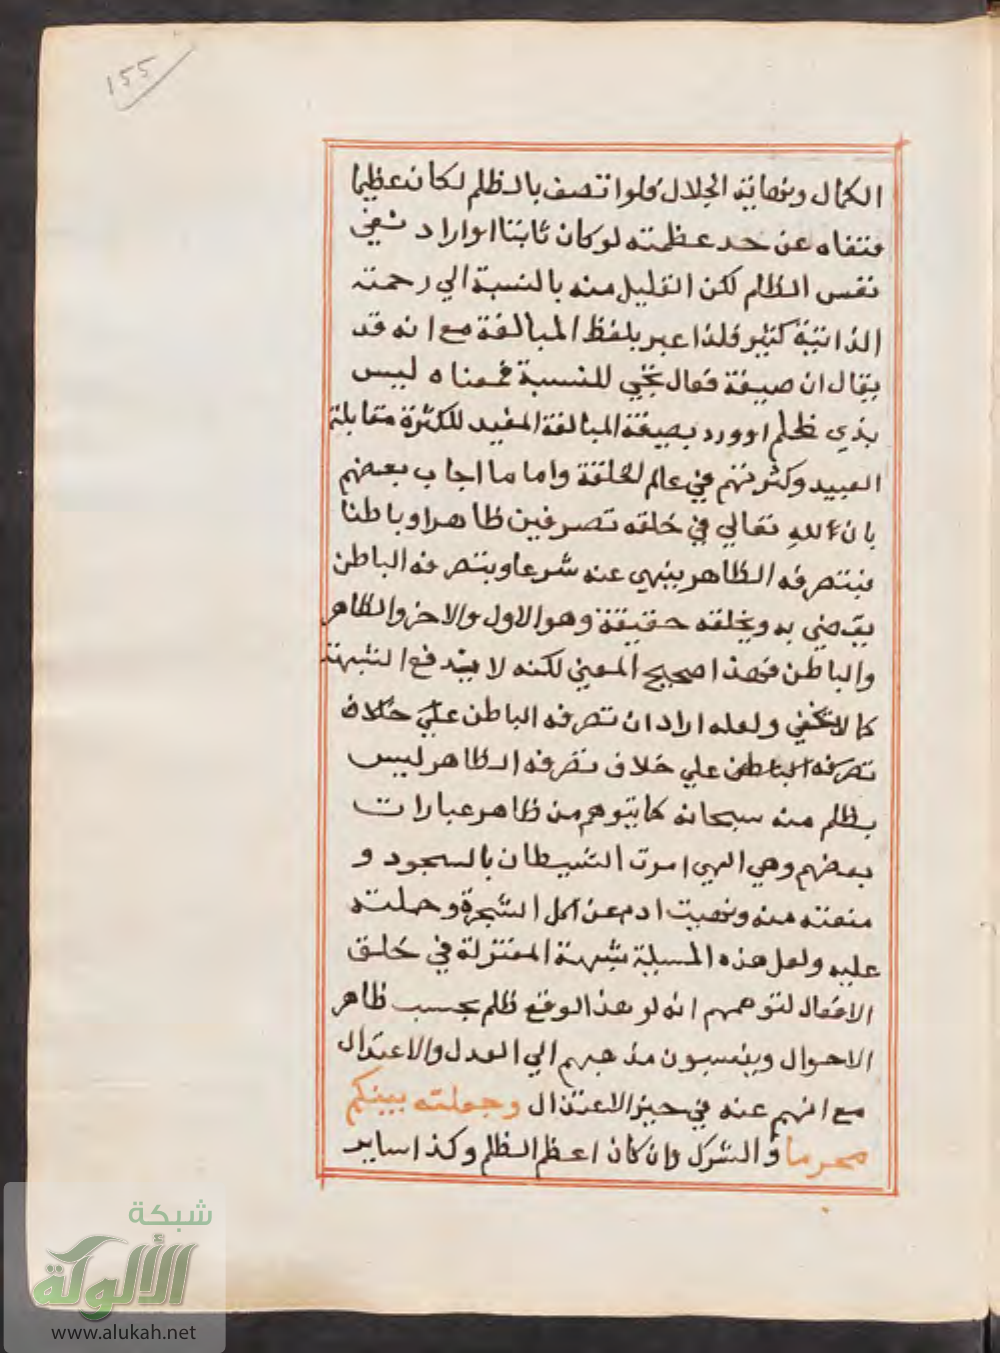 155
الكمال ونهاية الجلال فلو اتصف بالظلم لكان عظيما
فنفاه عن حد عظمته لو كان ثابتا او اراد نفي
نفس الظلم لكن القليل منه بالنسبة الي رحمته
الذاتية كثير فلذا عبر بلفظ المبالغة مع انه قد
يقال ان صيغة فعال تجي للنسبة فمعناه ليس
بذي ظلم او ورد بصيغة المبالغة المفيد للكثرة مقابلة
العبيد وكثرتهم في عالم الخلقة واما ما اجاب بعضهم
بان لله تعالي في خلقه تصرفين ظاهرا وباطنا
فبتصرفه الظاهر ينهي عنه شرعا وبتصرفه الباطن
يقضي به ويخلقه حقيقة وهو الاول والاخر والظاهر
والباطن فهذا صحيح المعني لكنه لا يندفع الشبهة
كما لا يخفي ولعله اراد ان تصرفه الباطن علي خلاف
تصرفه الباطن علي خلاف تصرفه الظاهر ليس
بظلم منه سبحانه كما يتوهم من ظاهر عبارات
بعضهم وهي الهي امرت الشيطان بالسجود و
منعته منه ونهيت ادم عن اكل الشجرة وحملته
عليه ولعل هذه المسيلة شبهة المعتزلة في خلق
الافعال لتوهمهم انه لو هذا لوقع ظلم بحسب ظاهر
الاحوال وينسبون مذهبهم الي العدل والاعتدال
مع انهم عنه في حيز الاعتزال وجعلته بينكم
محرما والشرك وان كان اعظم الظلم وكذا ساير
شبكة
الألوكة
www.alukah.net